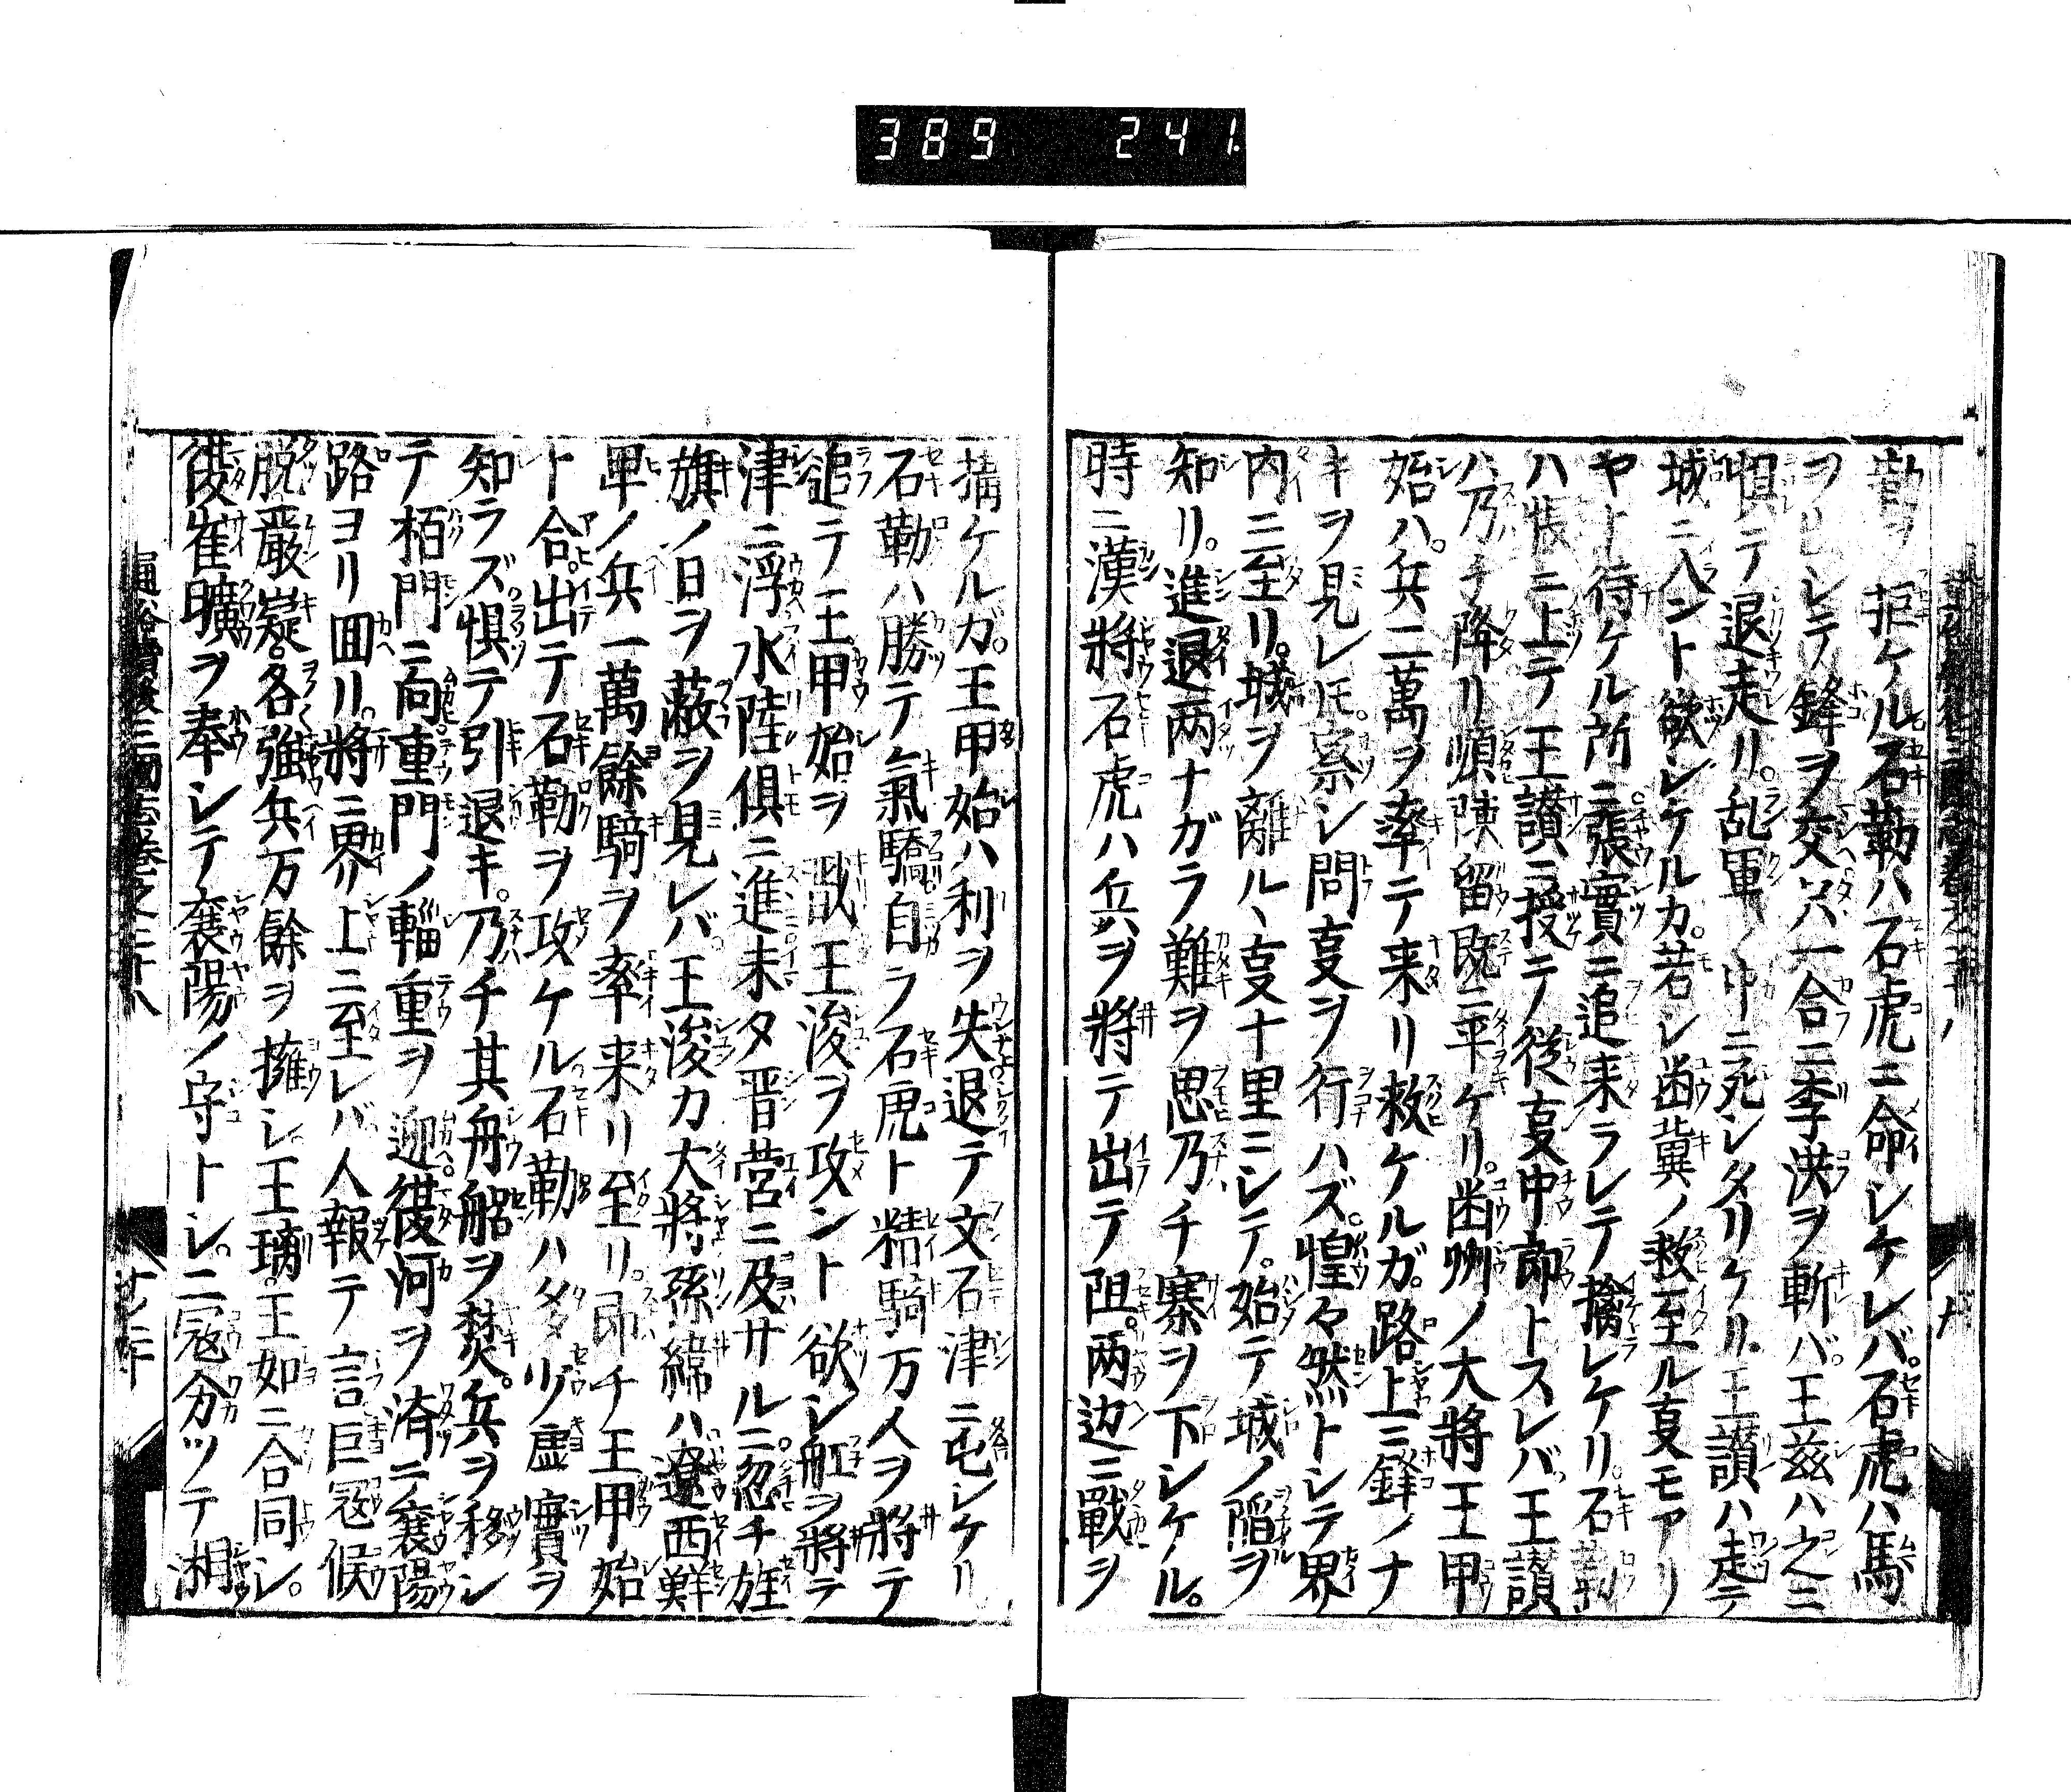 389 241
ヲ拒ケル石勒ハ石虎ニ命シケレバ。石虎ハ馬
ヲシテ鋒ヲ交ヘ一合ニ李洪ヲ斬バ。王茲ハ之ニ
惧テ退走リ。乱軍ノ中ニ死シタリケル。王讃ハ走テ
城ニ入ント欲シケルカ。若シ幽冀ノ救至ル叓モアリ
ヤト待ケル所ニ。張實ニ追来ラレテ擒レケリ。石勒
ハ帳ニ上テ王讃ニ授テ從叓中郎トスレバ。王讃
ハ乃チ降リ頓陳留既ニ平ケリ。幽州ノ大將王甲
始ハ。兵二萬ヲ率テ来リ救ケルガ。路上ニ鋒ノナ
キヲ見レ𪜈。察シ問叓ヲ行ハズ。惶々然トシテ界
内ニ至リ。城ヲ離ルヽ叓十里ニシテ。始テ城ノ陷ヲ
知リ。進退两ナガラ難ヲ思乃チ寨ヲ下シケル。
時ニ漢將石虎ハ兵ヲ將テ出テ阻。两边ニ戰ヲ
搆ケルガ。王甲始ハ利ヲ失退テ文石津ニ屯シケリ
石勒ハ勝テ氣驕自ラ石虎ト精騎万人ヲ將テ
追テ王甲始ヲ𢧵王浚ヲ攻ント欲シ舡ヲ將テ
津ニ浮水陸俱ニ進未タ晋营ニ及サルニ。忽チ旌
旗ノ日ヲ蔽ヲ見レバ。王浚カ大將孫緯ハ遼西鮮
卑ノ兵一萬餘騎ヲ率来リ至リ。即チ王甲始
ト合。出テ石勒ヲ攻ケル。石勒ハタヾヅ虚實ヲ
知ラズ。惧テ引退キ。乃チ其舟舩ヲ焚。兵ヲ移シ
テ栢門ニ向。重門ノ輜重ヲ迎。復河ヲ濟ニ襄陽
路ヨリ囬リ。將ニ界リ上ニ至レバ。人報テ言巨冦候
脱。嚴嶷。各強兵万餘ヲ擁シ。王璃。王如ニ合同シ。
復崔曠ヲ奉シテ襄陽ノ守トシ。二冦分ツテ湘
通俗續後三國志巻之二十八 廿二